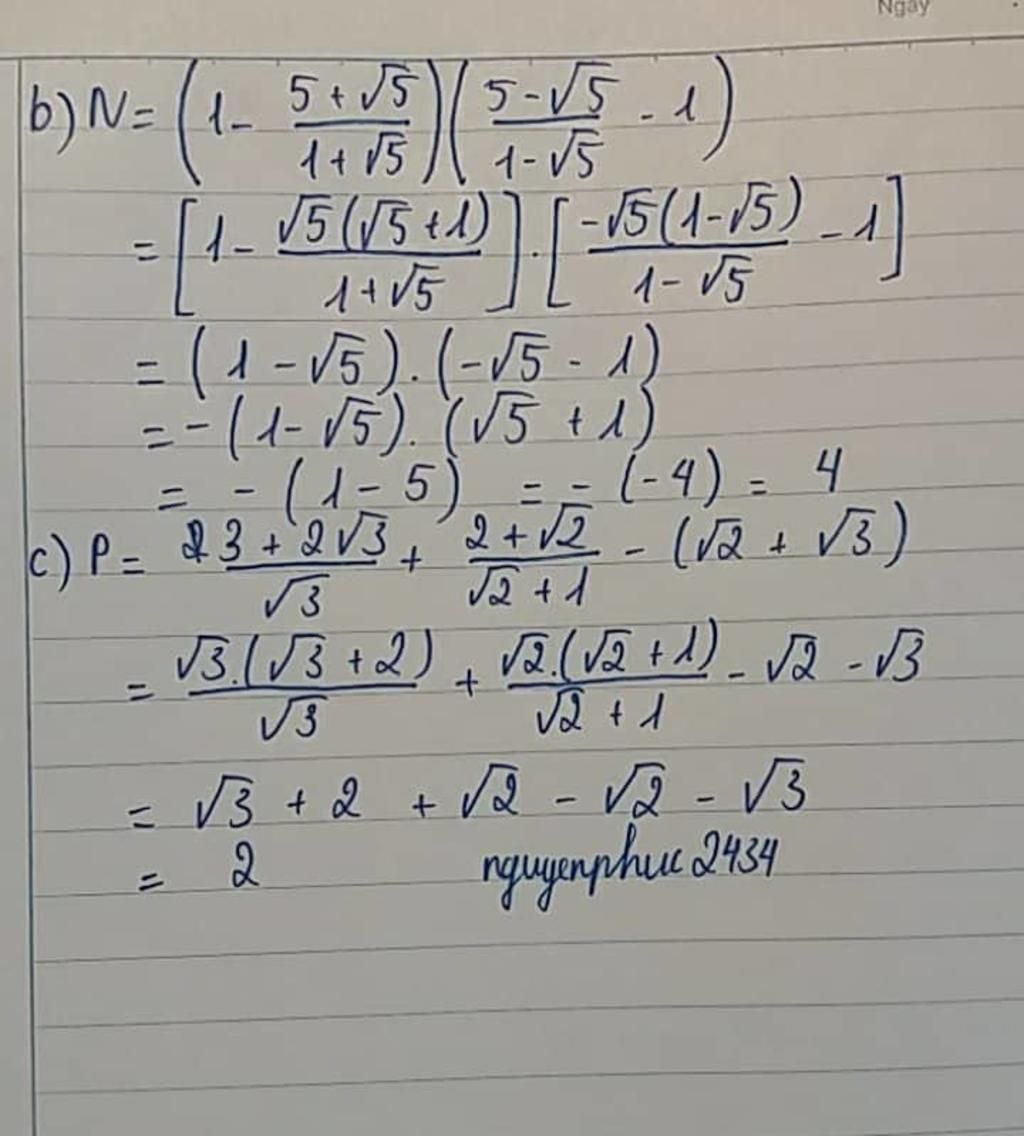 Ngày
b) N = (1 - (5 + √5)/(1 + √5)) ((5 - √5)/(1 - √5) - 1)
= [1 - √5(√5 + 1)/(1 + √5)] . [-√5(1 - √5)/(1 - √5) - 1]
= (1 - √5) . (-√5 - 1)
= - (1 - √5) . (√5 + 1)
= - (1 - 5) = - (-4) = 4
c) P = (3 + 2√3)/√3 + (2 + √2)/(√2 + 1) - (√2 + √3)
= √3.(√3 + 2)/√3 + √2.(√2 + 1)/(√2 + 1) - √2 - √3
= √3 + 2 + √2 - √2 - √3
= 2 nguyenphuc2434